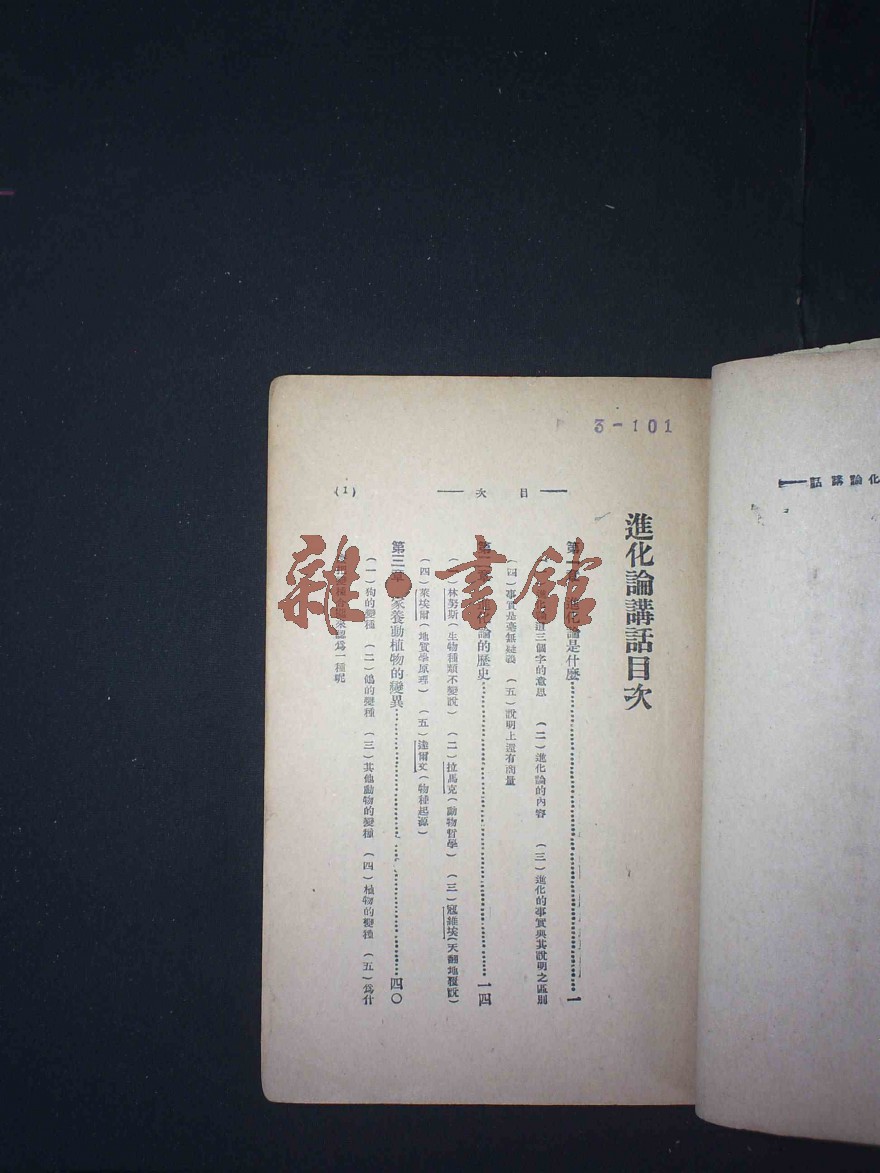 3-101
化論講話
進化論講話目次
第一章 進化論是什麼 一
進化論這三個字的意思 (二)進化論的內容 (三)進化的事實與其說明之區別
(四)事實是毫無疑義 (五)說明上還有商量
第二章 進化論的歷史 一四
(一)林努斯(生物種類不變說) (二)拉馬克(動物哲學) (三)寇維埃(天翻地覆說)
(四)萊埃爾(地質學原理) (五)達爾文(物種起源)
第三章 家養動植物的變異 四〇
(一)狗的變種 (二)鴿的變種 (三)其他動物的變種 (四)植物的變種 (五)爲什
認爲一種呢
目次
(1)
雜·書館